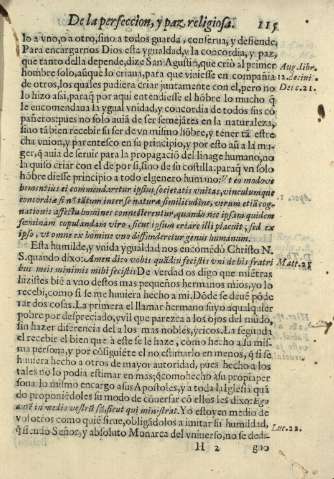 De la perfeccion, y paz religiosa. 115
lo a vno, o a otro, sino a todos guarda, conserua, y defiende,
Para encargarnos Dios esta ygualdad, y la concordia, y paz,
que tanto della depende, dize San Agustin, que criò al primer
hombre solo, aũque lo criaua, para que viuiesse en compañia
de otros, los quales pudiera criar juntamente con el, pero no
lo hizo assi, paraq̃ por aqui entendiesse el hõbre lo mucho q̃
le encomendaua la ygualdad, y concordia de todos sus cõ
pañeros: pues no solo auiã de ser semejãtes en la naturaleza,
sino tãbien recebir su ser de vn mismo hõbre, y tener tã estre
cha vnion, y parentesco en su principio, y por esto aũ a la mu-
ger, q̃ auia de seruir para la propagaciõ del linage humano, no
la quiso criar con el de por si, sino de su costilla: paraq̃ vn solo
hõbre diesse principio a todo el genero humano: Vt eo modo ve
hementius ei commendaretur ipsius societatis vnitas, vinculumque
concordiæ si nõ tãtum inter se naturæ similitudine, verum etiã cog-
nationis affectu homines connecterentur, quando nec ipsam quidem
fœminam copulandam viro, sicut ipsum creare illi placuit, sed ex
ipso, vt omne ex homine vno diffunderetur genus humanum.
Esta humilde, y vnida ygualdad nos encomẽdo Christo N.
S. quando dixo: Amen dico vobis quãdiu fecistis vni de his fratri
bus meis minimis mihi fecistis De verdad os digo que miẽtras
hizistes biẽ a vno destos mas pequeños hermanos mios, yo lo
recebi, como si se me huuiera hecho a mi. Dõde se deuẽ põde
rar dos cosas. La primera el llamar hermano suyo a qualquier
pobre por despreciado, y vil que parezca a los ojos del mũdo,
sin hazer diferencia del a los mas nobles, y ricos. La segũda,
el recebir el bien que a este se le haze, como hecho a su mis-
ma persona, y por cõsiguiẽte el no estimarlo en menos, q̃ si se
huuiera hecho a otros de mayor autoridad, pues hecho a los
tales no lo podia estimar en mas, q̃ como hecho a su propia per
sona. lo mismo encargo a sus Apostoles, y a toda la Iglesia quã
do proponiẽdoles su modo de cõuersar cõ ellos les dixo: Ego
autẽ in medio vestrũ sũ, sicut qui ministrat. Yo estoy en medio de
vosotros como quiẽ sirue, obligãdolos a imitar su humildad,
q̃ siẽdo Señor, y absoluto Monarca del vniuerso, no se dedig-
H 2 gno
Aug. libr.
12. de ciui.
Dei c. 21.
Matt. 25
Luc. 22.